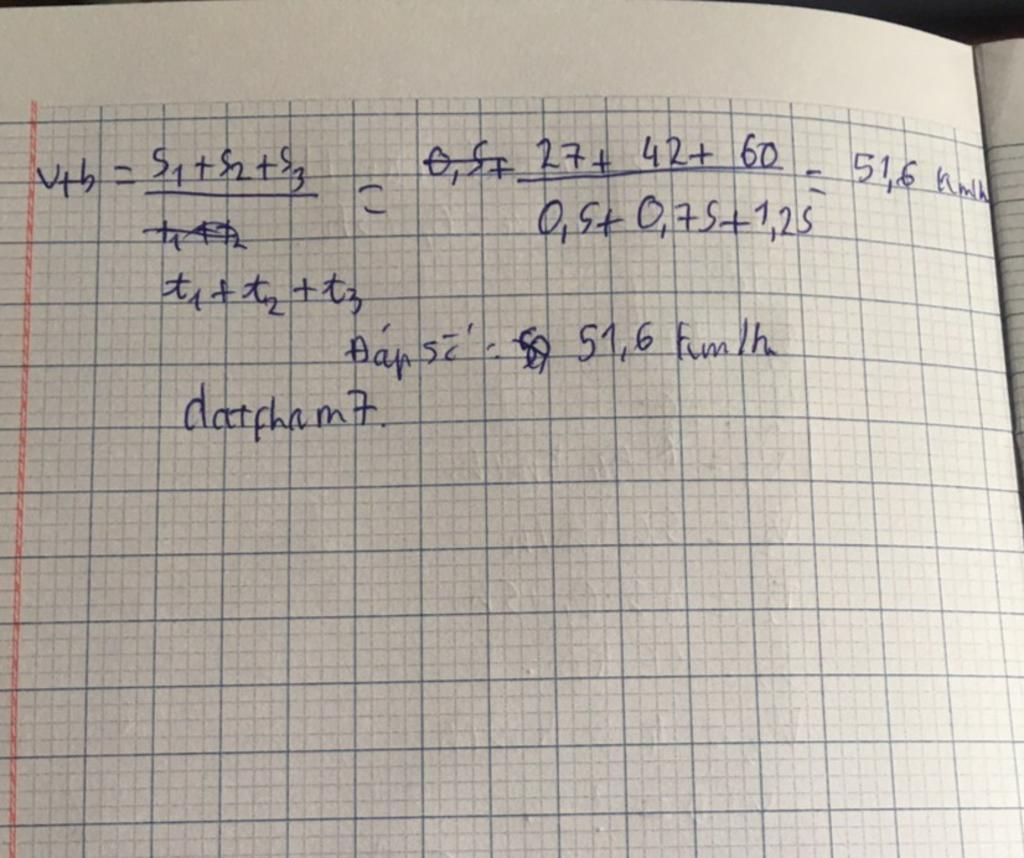 vtb = S1 + S2 + S3 / t1 + t2 + t3 = 27 + 42 + 60 / 0,5 + 0,75 + 1,25 = 51,6 km/h
Đáp số : 51,6 km/h
datpham7.